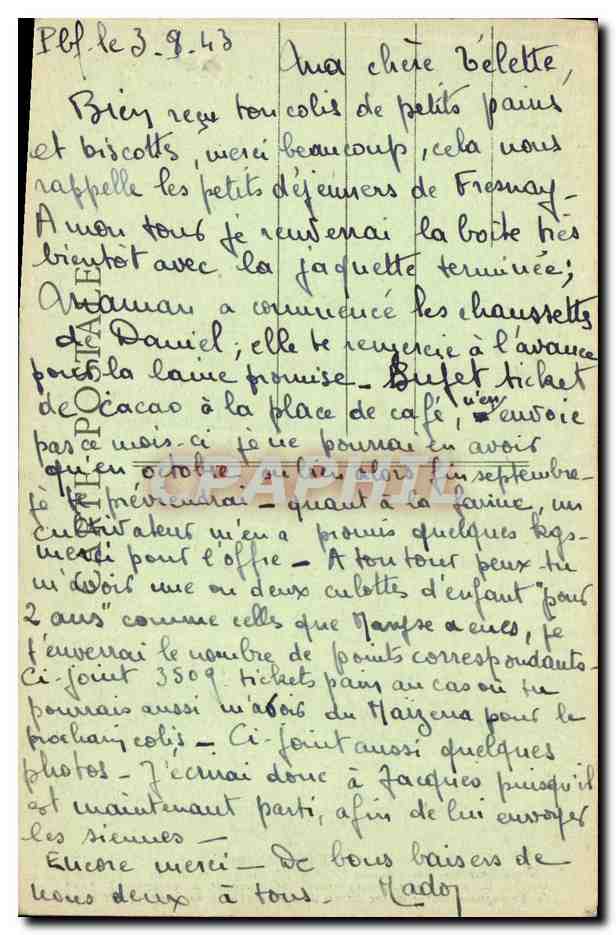 Pbf. le 3-9-43
Ma chère Vélette,
Bien reçu ton colis de petits pains
et biscottes, merci beaucoup, cela nous
rappelle les petits déjeuners de Fresnay -
A mon tour je renverrai la boîte très
bientôt avec la jaquette terminée;
Maman a commencé les chaussettes
de Daniel; elle te remercie à l'avance
pour la laine promise - ticket
de cacao à la place de café, n'en envoie
pas ce mois-ci je ne pourrai en avoir
qu'en octobre ou bien alors fin septembre -
je te préviendrai - quant à la farine, un
cultivateur m'en a promis quelques kgs -
merci pour l'offre - A ton tour peux-tu
m'avoir une ou deux culottes d'enfant "pour
2 ans" comme celles que Maryse a eues, je
t'enverrai le nombre de points correspondants -
Ci-joint 350g tickets pain au cas où tu
pourrais aussi m'avoir du Maïzena pour le
prochain colis - Ci-joint aussi quelques
photos - J'écrirai donc à Jacques puisqu'il
est maintenant parti, afin de lui envoyer
les siennes -
Encore merci - De bons baisers de
nous deux à tous. Mado
CARTE POSTALE
CPAPHIL